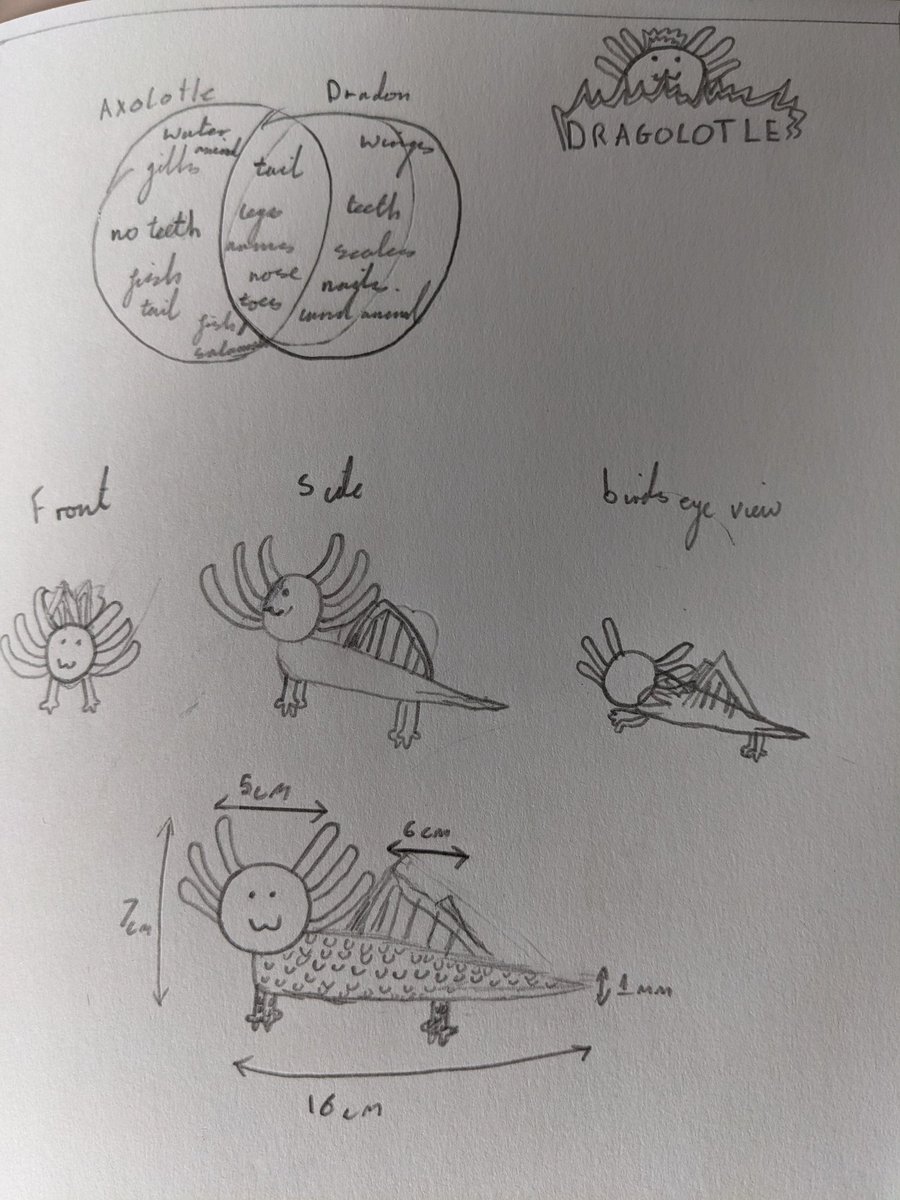 Axolotle
Dradon
DRAGOLOTLE
water
animal
gills
no teeth
fish
tail
fish/
tail
legs
nose
toes
wings
teeth
scales
nails.
animal
Front
Side
birds eye view
5cm
6cm
7cm
1mm
16cm